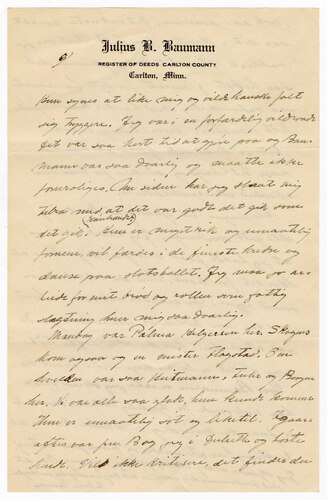 6)
Julius B. Baumann
REGISTER OF DEEDS CARLTON COUNTY
Carlton, Minn.
hun synes at like mig og vilde kanske følt
sig tryggere. Jeg var i en forfærdelig vildrede
det var saa kort tid at gjøre paa og Bau-
mann var saa daarlig og maatte ikke
foruroliges. Men siden har jeg slaaet mig
tiltro med, at det var godt det gik som
(kanhænde)
det gik. Hun er meget rik og umaadelig
fornem, vil færdes i de fineste kredse og
danse paa slotsballet. Jeg maa jo ar-
beide for mit brød og rollen som fattig
slægtning huer mig saa daarlig.
Mandag var Palma her. Skogus
kom ogsaa og en mister Flagstad. Om
kvelden var saa
her. Vi var alle saa glad, hun kunde komme
Hun er umaadelig søt og liketil. Igaar
aftes var fru Boy jeg i Duluth og hørte
Vil ikke kritisere, det finder du